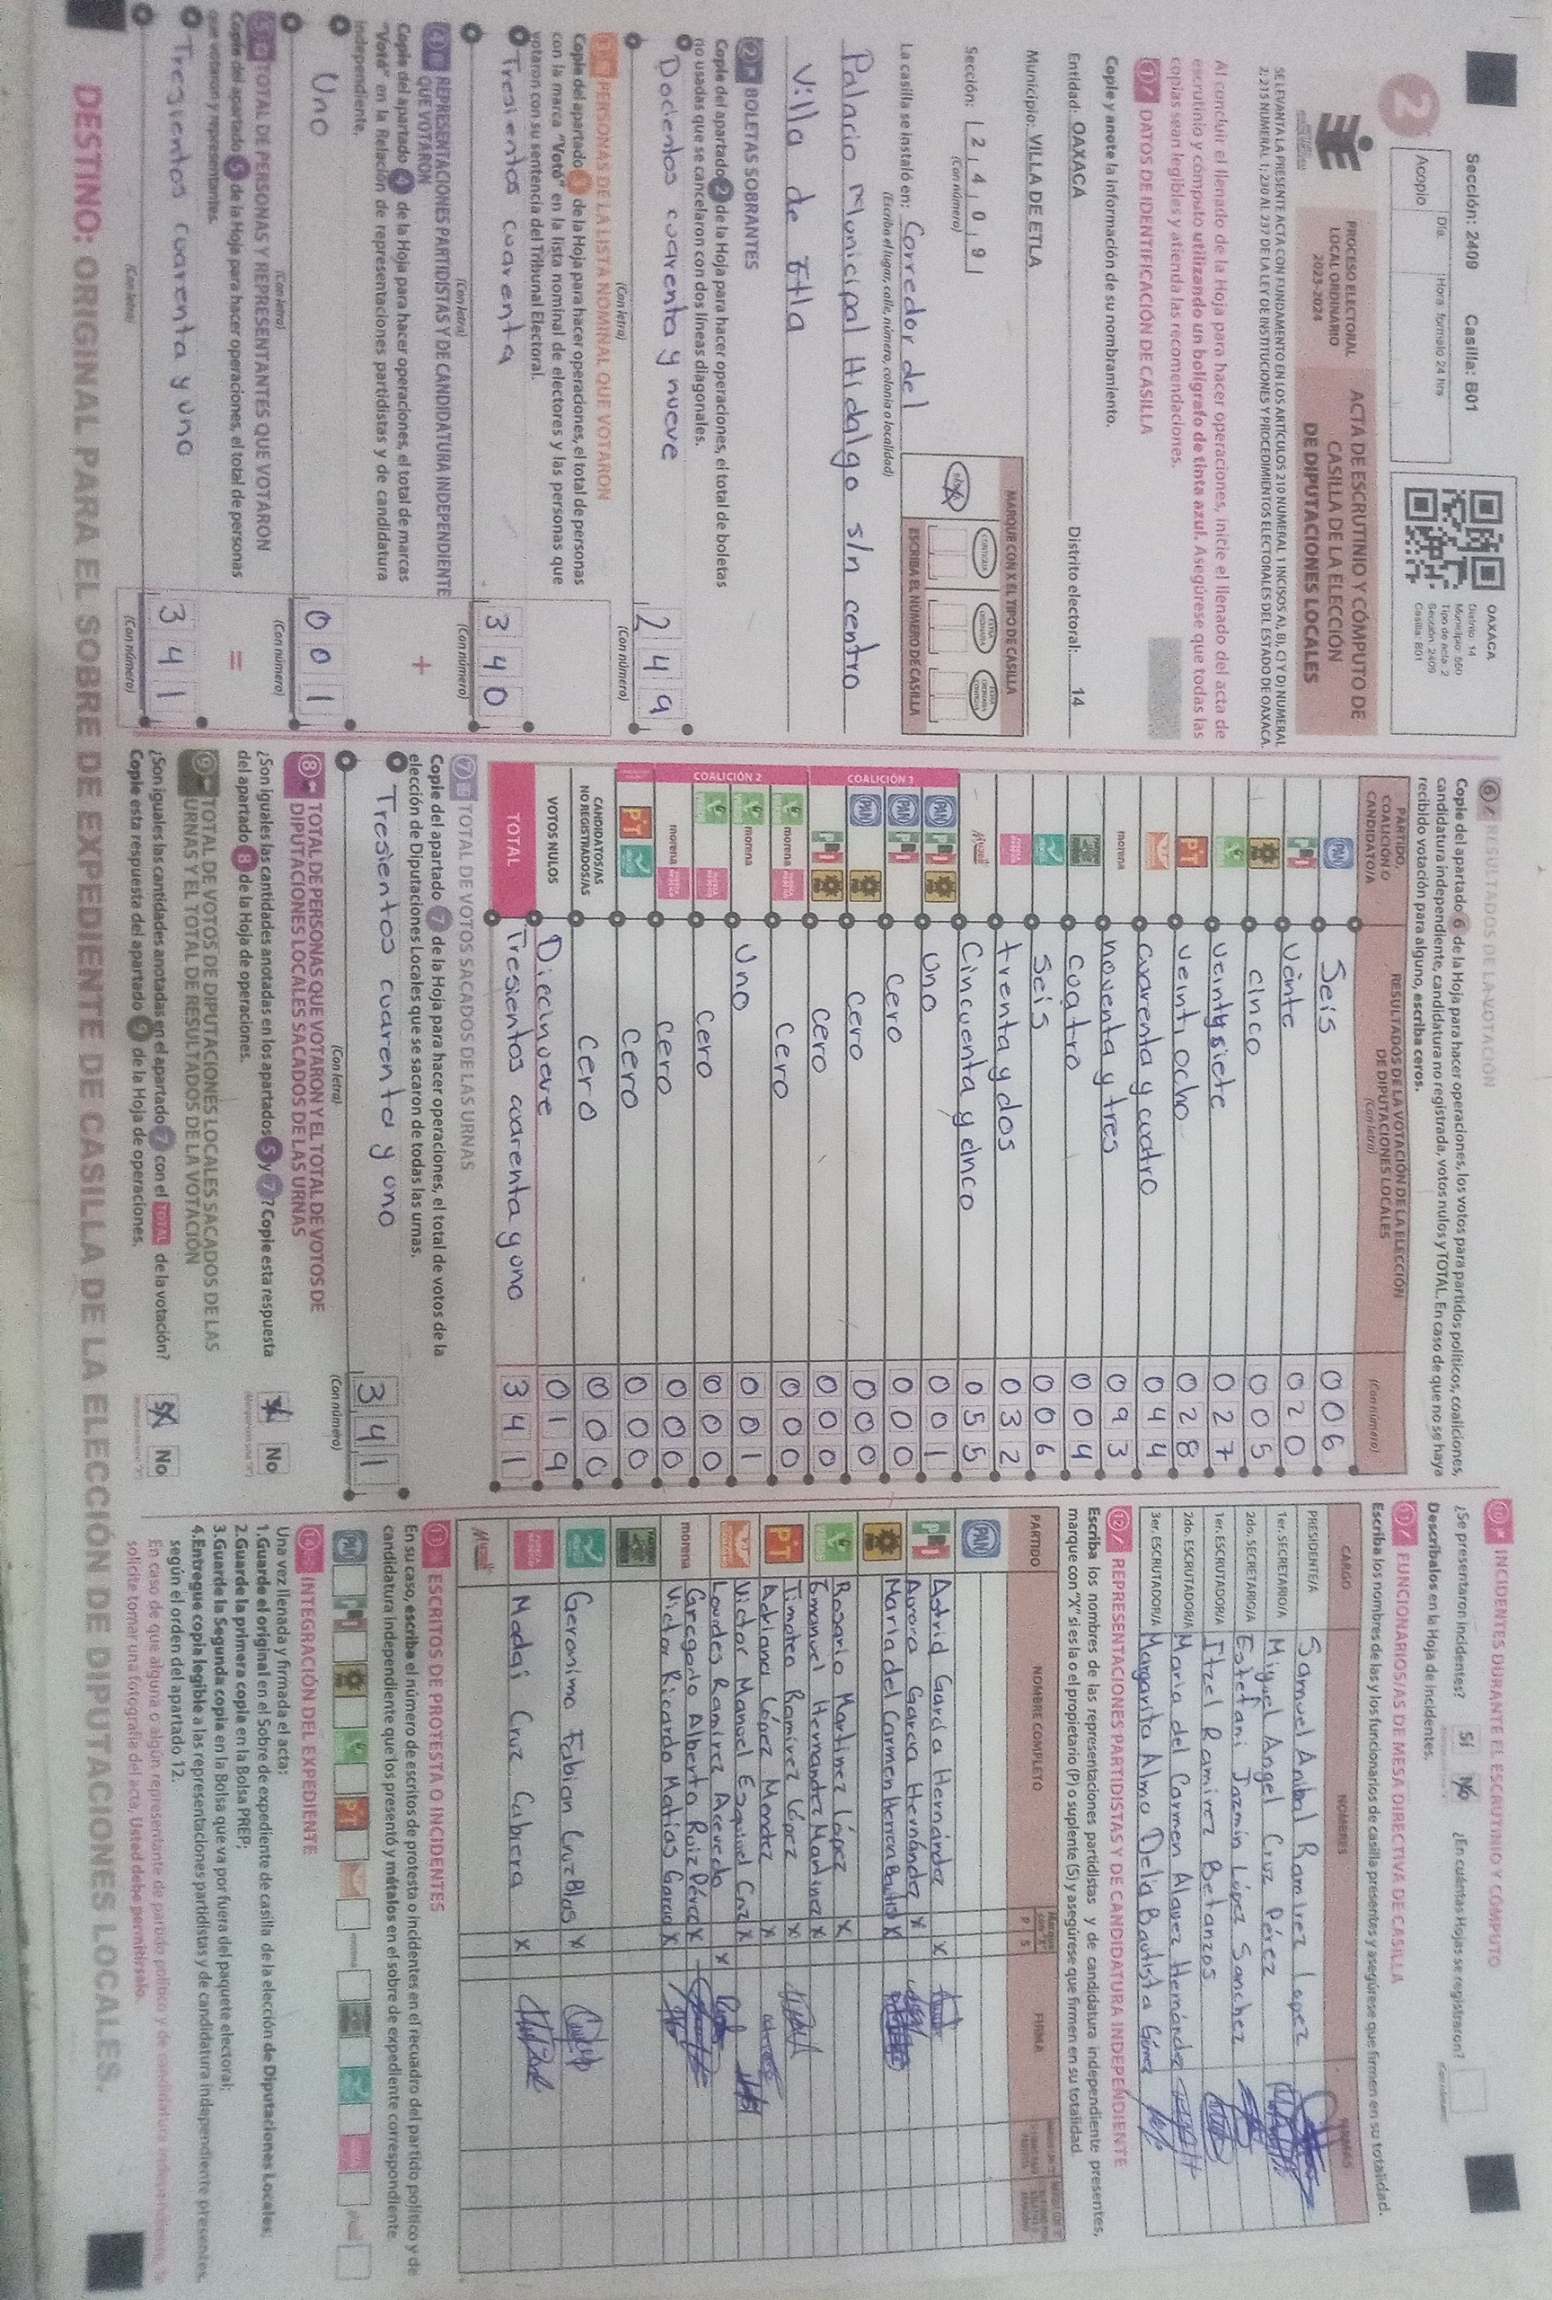 Sección: 2409 Casilla: B01
Día Hora: formato 24 hrs
Acopio
OAXACA
Distrito: 14
Municipio: 560
Tipo de acta: 2
Sección: 2409
Casilla: B01
2
PROCESO ELECTORAL
LOCAL ORDINARIO
2023-2024
ACTA DE ESCRUTINIO Y CÓMPUTO DE
CASILLA DE LA ELECCIÓN
DE DIPUTACIONES LOCALES
SE LEVANTA LA PRESENTE ACTA CON FUNDAMENTO EN LOS ARTÍCULOS 210 NUMERAL 1 INCISOS A), B), C) Y D) NUMERAL
2; 215 NUMERAL 1; 230 AL 237 DE LA LEY DE INSTITUCIONES Y PROCEDIMIENTOS ELECTORALES DEL ESTADO DE OAXACA.
Al concluir el llenado de la Hoja para hacer operaciones, inicie el llenado del acta de
escrutinio y cómputo utilizando un bolígrafo de tinta azul. Asegúrese que todas las
copias sean legibles y atienda las recomendaciones.
1 DATOS DE IDENTIFICACIÓN DE CASILLA
Copie y anote la información de su nombramiento.
Entidad: OAXACA Distrito electoral: 14
Municipio: VILLA DE ETLA
Sección: 2 4 0 9
(Con número)
MARQUE CON X EL TIPO DE CASILLA
ESCRIBA EL NÚMERO DE CASILLA
La casilla se instaló en: Corredor del
(Escriba el lugar, calle, número, colonia o localidad)
Palacio Municipal Hidalgo s/n centro
Villa de Etla
2 BOLETAS SOBRANTES
Copie del apartado 2 de la Hoja para hacer operaciones, el total de boletas
no usadas que se cancelaron con dos líneas diagonales.
Docientos cuarenta y nueve 2 4 9
(Con letra) (Con número)
3 PERSONAS DE LA LISTA NOMINAL QUE VOTARON
Copie del apartado 3 de la Hoja para hacer operaciones, el total de personas
con la marca "Votó" en la lista nominal de electores y las personas que
votaron con su sentencia del Tribunal Electoral.
Tresientos cuarenta 3 4 0
(Con letra) (Con número)
4 REPRESENTACIONES PARTIDISTAS Y DE CANDIDATURA INDEPENDIENTE
QUE VOTARON +
Copie del apartado 4 de la Hoja para hacer operaciones, el total de marcas
"Votó" en la Relación de representaciones partidistas y de candidatura
independiente.
Uno 0 0 1
(Con letra) (Con número)
5 TOTAL DE PERSONAS Y REPRESENTANTES QUE VOTARON =
Copie del apartado 5 de la Hoja para hacer operaciones, el total de personas
que votaron y representantes.
Tresientos cuarenta y uno 3 4 1
(Con letra) (Con número)
6 RESULTADOS DE LA VOTACIÓN
Copie del apartado 6 de la Hoja para hacer operaciones, los votos para partidos políticos, coaliciones,
candidatura independiente, candidatura no registrada, votos nulos y TOTAL. En caso de que no se haya
recibido votación para alguno, escriba ceros.
PARTIDO, COALICIÓN O CANDIDATO/A RESULTADOS DE LA VOTACIÓN DE LA ELECCIÓN DE DIPUTACIONES LOCALES (Con letra) (Con número)
PAN Seis 006
PRI Veinte 020
cinco 005
veinty siete 027
PT veinti ocho 028
cuarenta y cuatro 044
morena noventa y tres 093
cuatro 004
seis 006
treinta y dos 032
Cincuenta y cinco 055
COALICIÓN 1
PAN PRI Uno 001
PAN PRI cero 000
PAN cero 000
PRI cero 000
COALICIÓN 2
morena cero 000
morena Uno 001
cero 000
morena cero 000
PT cero 000
CANDIDATOS/AS NO REGISTRADOS/AS cero 000
VOTOS NULOS Diecinueve 019
TOTAL Tresientos cuarenta y uno 341
7 TOTAL DE VOTOS SACADOS DE LAS URNAS
Copie del apartado 7 de la Hoja para hacer operaciones, el total de votos de la
elección de Diputaciones Locales que se sacaron de todas las urnas.
Tresientos cuarenta y uno 3 4 1
(Con letra) (Con número)
8 TOTAL DE PERSONAS QUE VOTARON Y EL TOTAL DE VOTOS DE
DIPUTACIONES LOCALES SACADOS DE LAS URNAS
¿Son iguales las cantidades anotadas en los apartados 5 y 7? Copie esta respuesta
del apartado 8 de la Hoja de operaciones. Sí No
9 TOTAL DE VOTOS DE DIPUTACIONES LOCALES SACADOS DE LAS
URNAS Y EL TOTAL DE RESULTADOS DE LA VOTACIÓN
¿Son iguales las cantidades anotadas en el apartado 7 con el TOTAL de la votación?
Copie esta respuesta del apartado 9 de la Hoja de operaciones. Sí No
10 INCIDENTES DURANTE EL ESCRUTINIO Y CÓMPUTO
¿Se presentaron incidentes? Sí No ¿En cuántas Hojas se registraron?
Descríbalos en la Hoja de incidentes.
11 FUNCIONARIOS/AS DE MESA DIRECTIVA DE CASILLA
Escriba los nombres de las y los funcionarios de casilla presentes y asegúrese que firmen en su totalidad.
CARGO NOMBRES FIRMAS
PRESIDENTE/A Samuel Anibal Ramirez Lopez
1er. SECRETARIO/A Miguel Angel Cruz Pérez
2do. SECRETARIO/A Estefani Jazmin López Sanchez
1er. ESCRUTADOR/A Itzel Ramirez Betanzos
2do. ESCRUTADOR/A Maria del Carmen Alavez Hernández
3er. ESCRUTADOR/A Margarita Alma Delia Bautista Gómez
12 REPRESENTACIONES PARTIDISTAS Y DE CANDIDATURA INDEPENDIENTE
Escriba los nombres de las representaciones partidistas y de candidatura independiente presentes,
marque con "X" si es la o el propietario (P) o suplente (S) y asegúrese que firmen en su totalidad.
PARTIDO NOMBRE COMPLETO P S FIRMA
PAN
PRI Astrid García Hernández X
Aurora Garcia Hernández X
Maria del Carmen Herrera Bautista X
Rosario Martinez López X
Emanuel Hernandez Martinez X
PT Timoteo Ramirez López X
Adriana López Mendez X
Victor Manuel Esquivel Cruz X
Lourdes Ramirez Acevedo X
morena Gregorio Alberto Ruiz Pérez X
Victor Ricardo Matias Garcia X
Geronimo Fabian Cruz Blas X
Madai Cruz Cabrera X
13 ESCRITOS DE PROTESTA O INCIDENTES
En su caso, escriba el número de escritos de protesta o incidentes en el recuadro del partido político y de
candidatura independiente que los presentó y métalos en el sobre de expediente correspondiente.
14 INTEGRACIÓN DEL EXPEDIENTE
Una vez llenada y firmada el acta:
1.Guarde el original en el Sobre de expediente de casilla de la elección de Diputaciones Locales;
2.Guarde la primera copia en la Bolsa PREP;
3.Guarde la Segunda copia en la Bolsa que va por fuera del paquete electoral;
4.Entregue copia legible a las representaciones partidistas y de candidatura independiente presentes,
según el orden del apartado 12.
En caso de que alguna o algún representante de partido político y de candidatura independiente, le
solicite tomar una fotografía del acta, Usted debe permitírselo.
DESTINO: ORIGINAL PARA EL SOBRE DE EXPEDIENTE DE CASILLA DE LA ELECCIÓN DE DIPUTACIONES LOCALES.